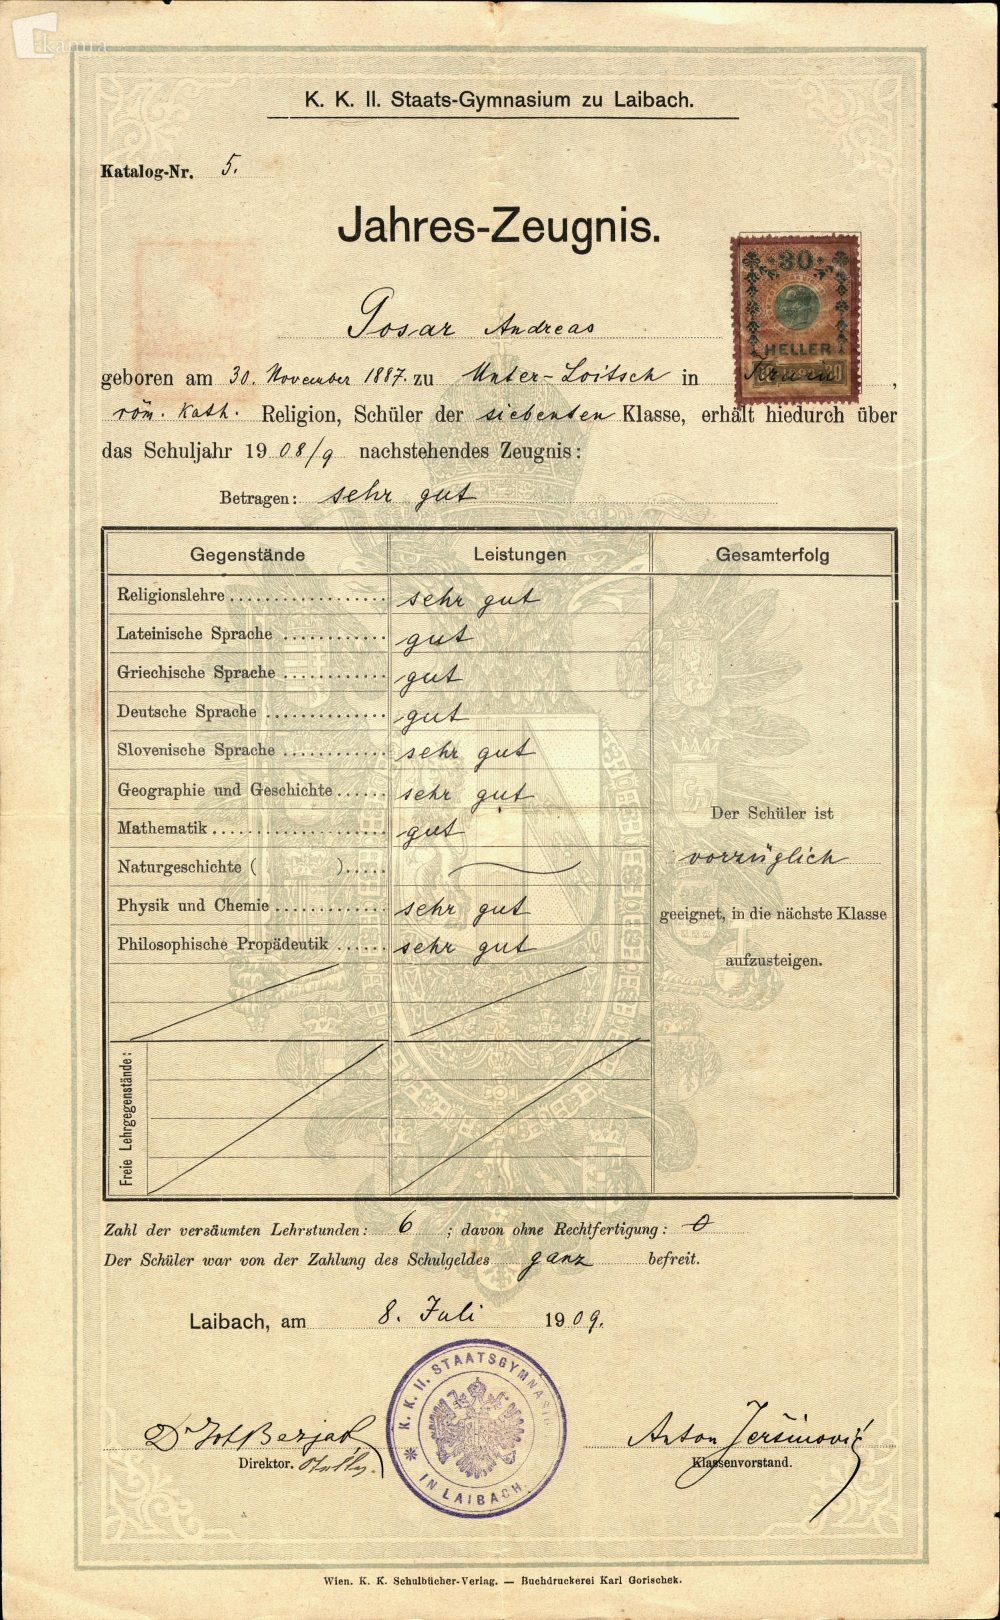 kamra
K. K. II. Staats-Gymnasium zu Laibach.
Katalog-Nr. 5.
Jahres-Zeugnis.
30
HELLER
Posar Andreas
geboren am 30. November 1887. zu Unter-Loitsch in Krain,
röm. kath. Religion, Schüler der siebenten Klasse, erhält hiedurch über
das Schuljahr 1908/9 nachstehendes Zeugnis:
Betragen: sehr gut
Gegenstände Leistungen Gesamterfolg
Religionslehre sehr gut
Lateinische Sprache gut
Griechische Sprache gut
Deutsche Sprache gut
Slovenische Sprache sehr gut
Geographie und Geschichte sehr gut
Mathematik gut
Naturgeschichte ( )
Physik und Chemie sehr gut
Philosophische Propädeutik sehr gut
Der Schüler ist
vorzüglich
geeignet, in die nächste Klasse
aufzusteigen.
Freie Lehrgegenstände:
Zahl der versäumten Lehrstunden: 6 ; davon ohne Rechtfertigung: 0
Der Schüler war von der Zahlung des Schulgeldes ganz befreit.
Laibach, am 8. Juli 1909.
K. K. II. STAATSGYMNASIUM
IN LAIBACH
Dr Jos Bezjak
Direktor.
Anton Jeršinović
Klassenvorstand.
Wien. K. K. Schulbücher-Verlag. — Buchdruckerei Karl Gorischek.